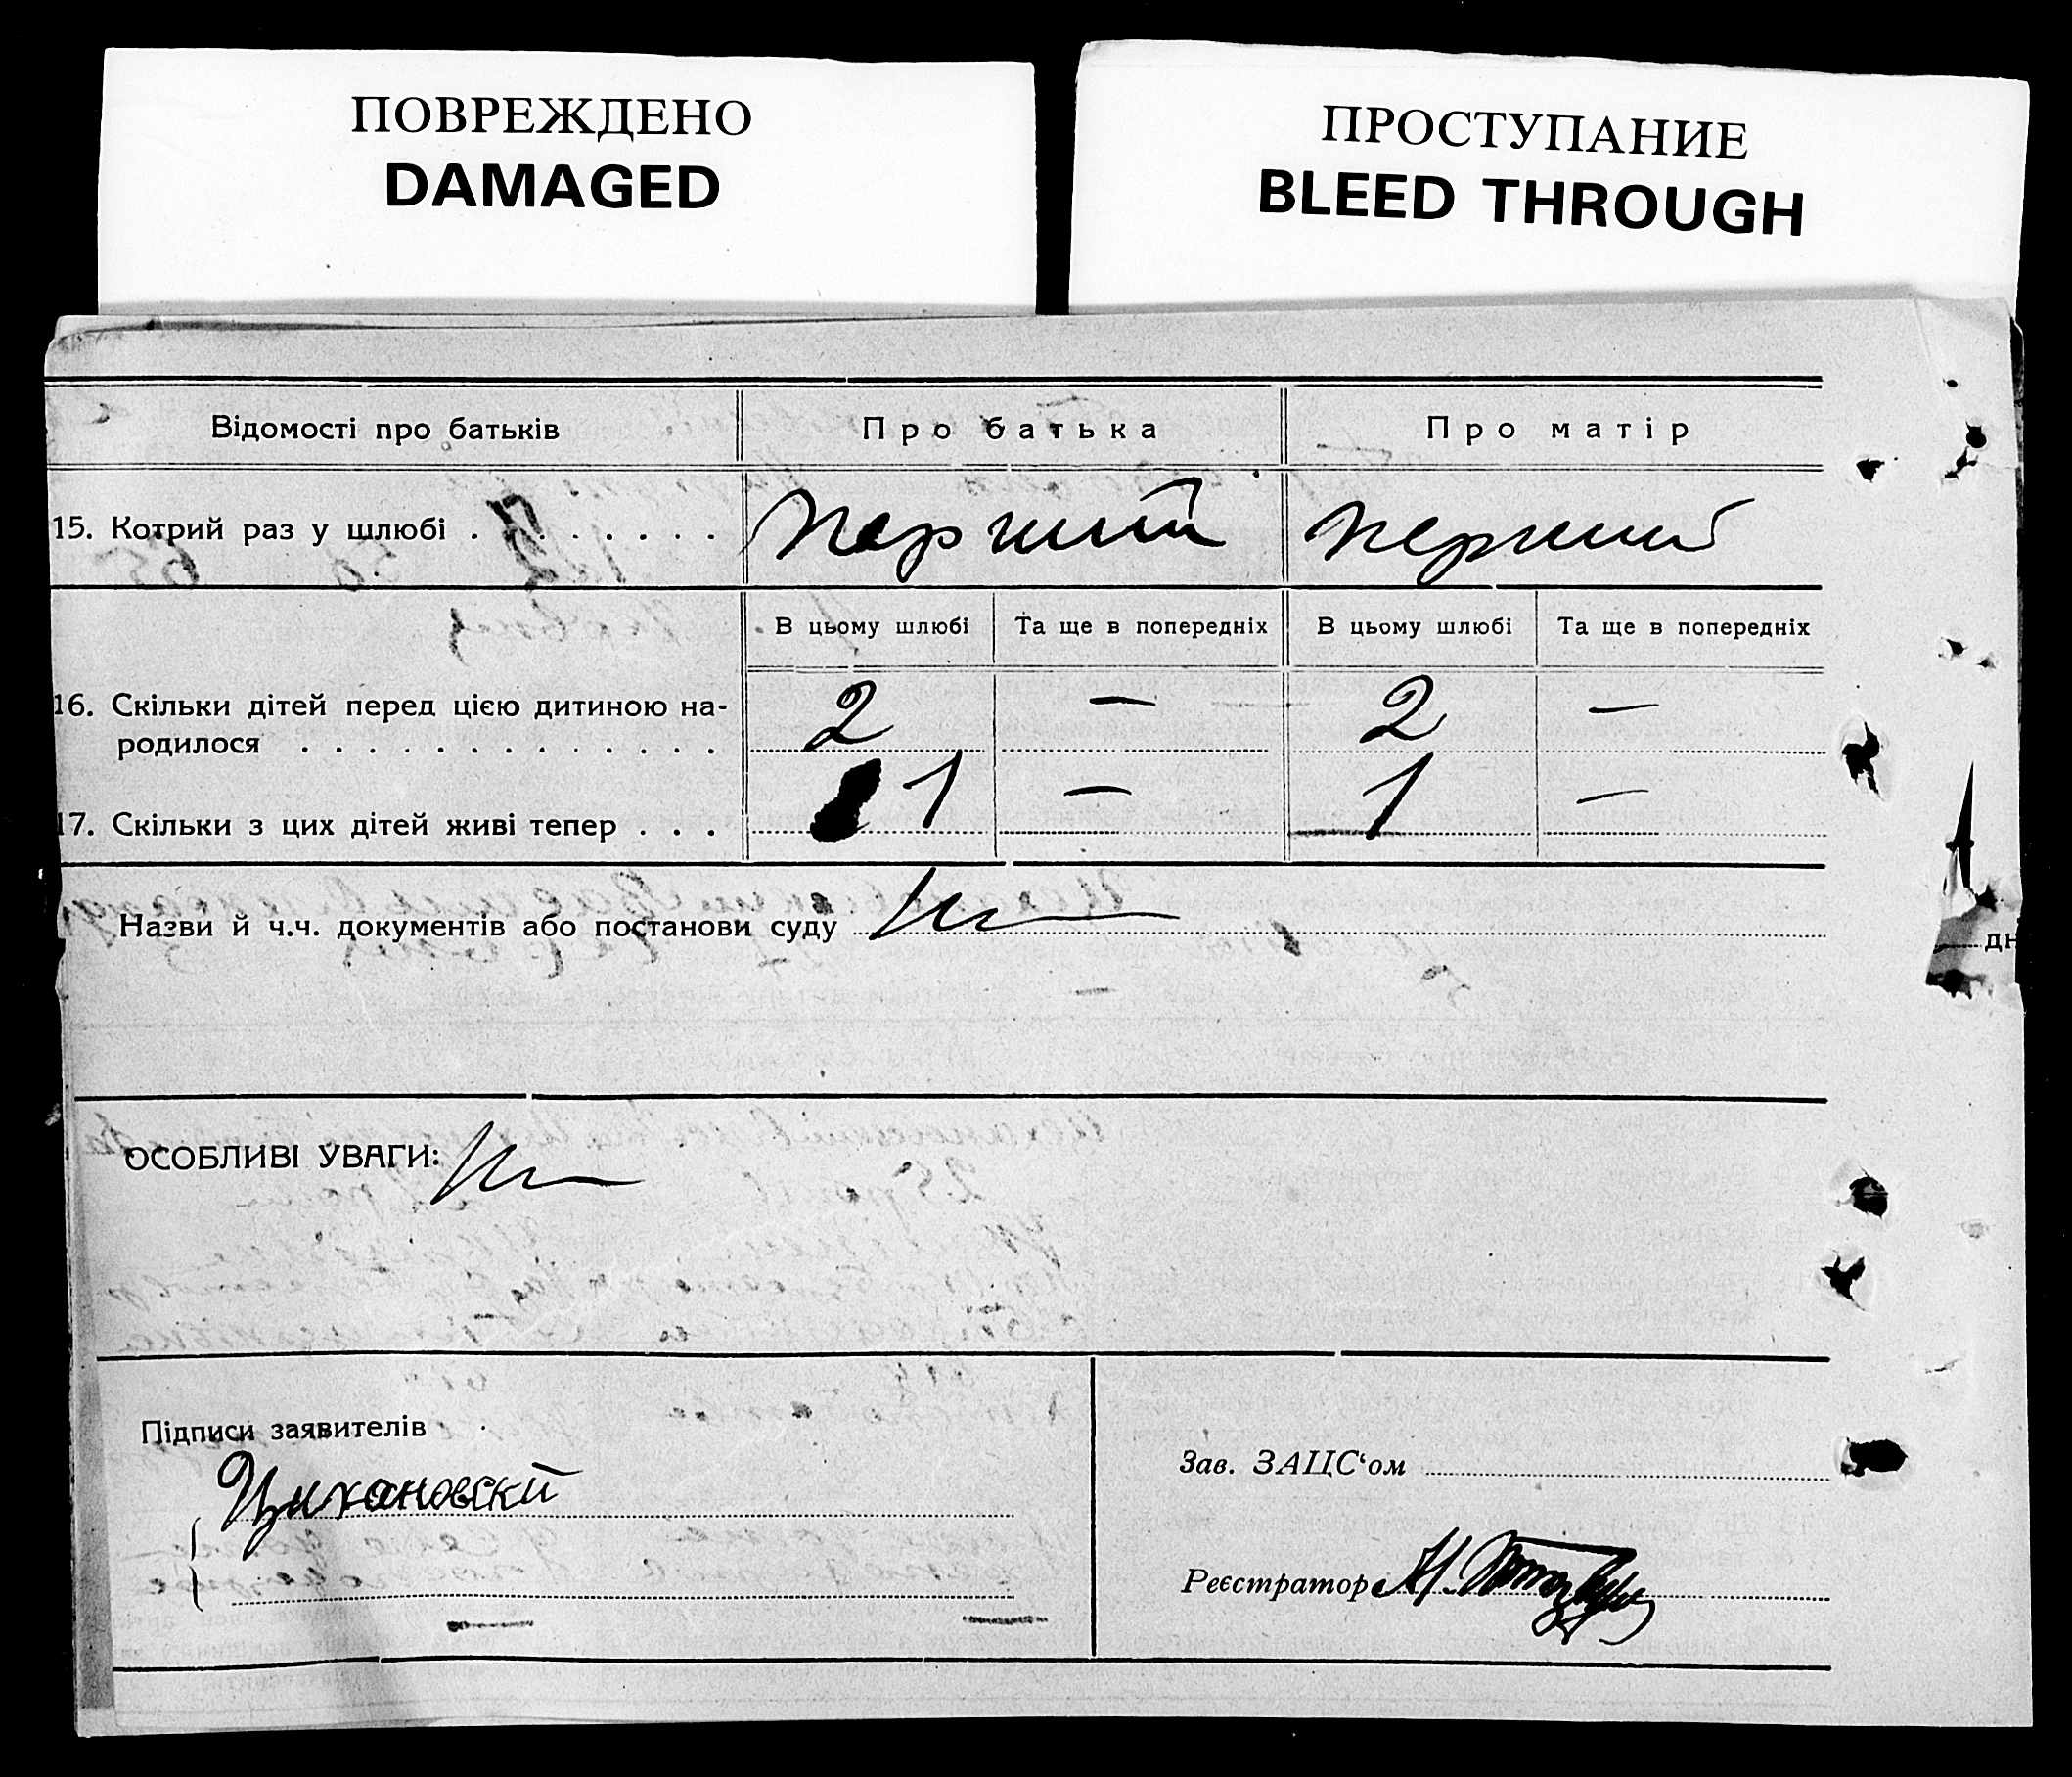 ПОВРЕЖДЕНО
DAMAGED
ПРОСТУПАНИЕ
BLEED THROUGH
Відомості про батьків
Про батька
Про матір
15. Котрий раз у шлюбі . . . . . . . .
перший
перший
В цьому шлюбі
Та ще в попередніх
В цьому шлюбі
Та ще в попередніх
16. Скільки дітей перед цією дитиною на-
родилося . . . . . . . . . . . . .
2
—
2
—
17. Скільки з цих дітей живі тепер . . .
1
—
1
—
Назви й ч.ч. документів або постанови суду
дн
ОСОБЛИВІ УВАГИ:
Підписи заявителів
Цихановскй
Зав. ЗАЦС‘ом
Реєстратор